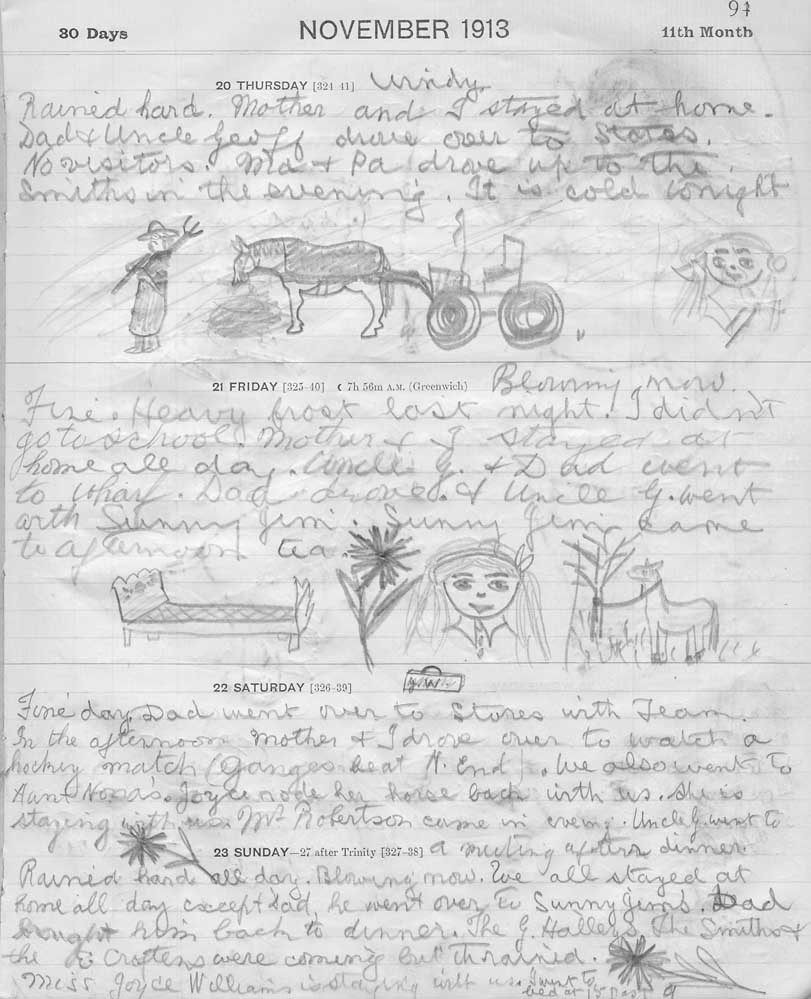 94
30 Days NOVEMBER 1913 11th Month
20 THURSDAY [324-41] Windy.
Rained hard. Mother and I stayed at home.
Dad & Uncle Geoff drove over to Stores.
No visitors. Ma & Pa drove up to the
Smiths in the evening. It is cold tonight
21 FRIDAY [325-40] ☾ 7h 56m A.M. (Greenwich) Blowing now.
Fine. Heavy frost last night. I didn't
go to school. Mother & I stayed at
home all day. Uncle G. & Dad went
to wharf. Dad drove. & Uncle G. went
with Sunny Jim. Sunny Jim came
to afternoon tea.
22 SATURDAY [326-39]
Fine day. Dad went over to Stores with Team.
In the afternoon Mother & I drove over to watch a
hockey match (Ganges beat N. End). We also went to
Aunt Noras. Joyce rode her horse back with us. She is
staying with us. Mr Robertson came in eveng. Uncle G. went to
23 SUNDAY—27 after Trinity [327-38] a meeting after dinner.
Rained hard all day. Blowing now. We all stayed at
home all day except Dad, he went over to Sunny Jim's. Dad
bought him back to dinner. The G. Halleys, The Smiths &
the Croftons were coming but rained.
Miss Joyce Williams is staying with us. I went to
bed at